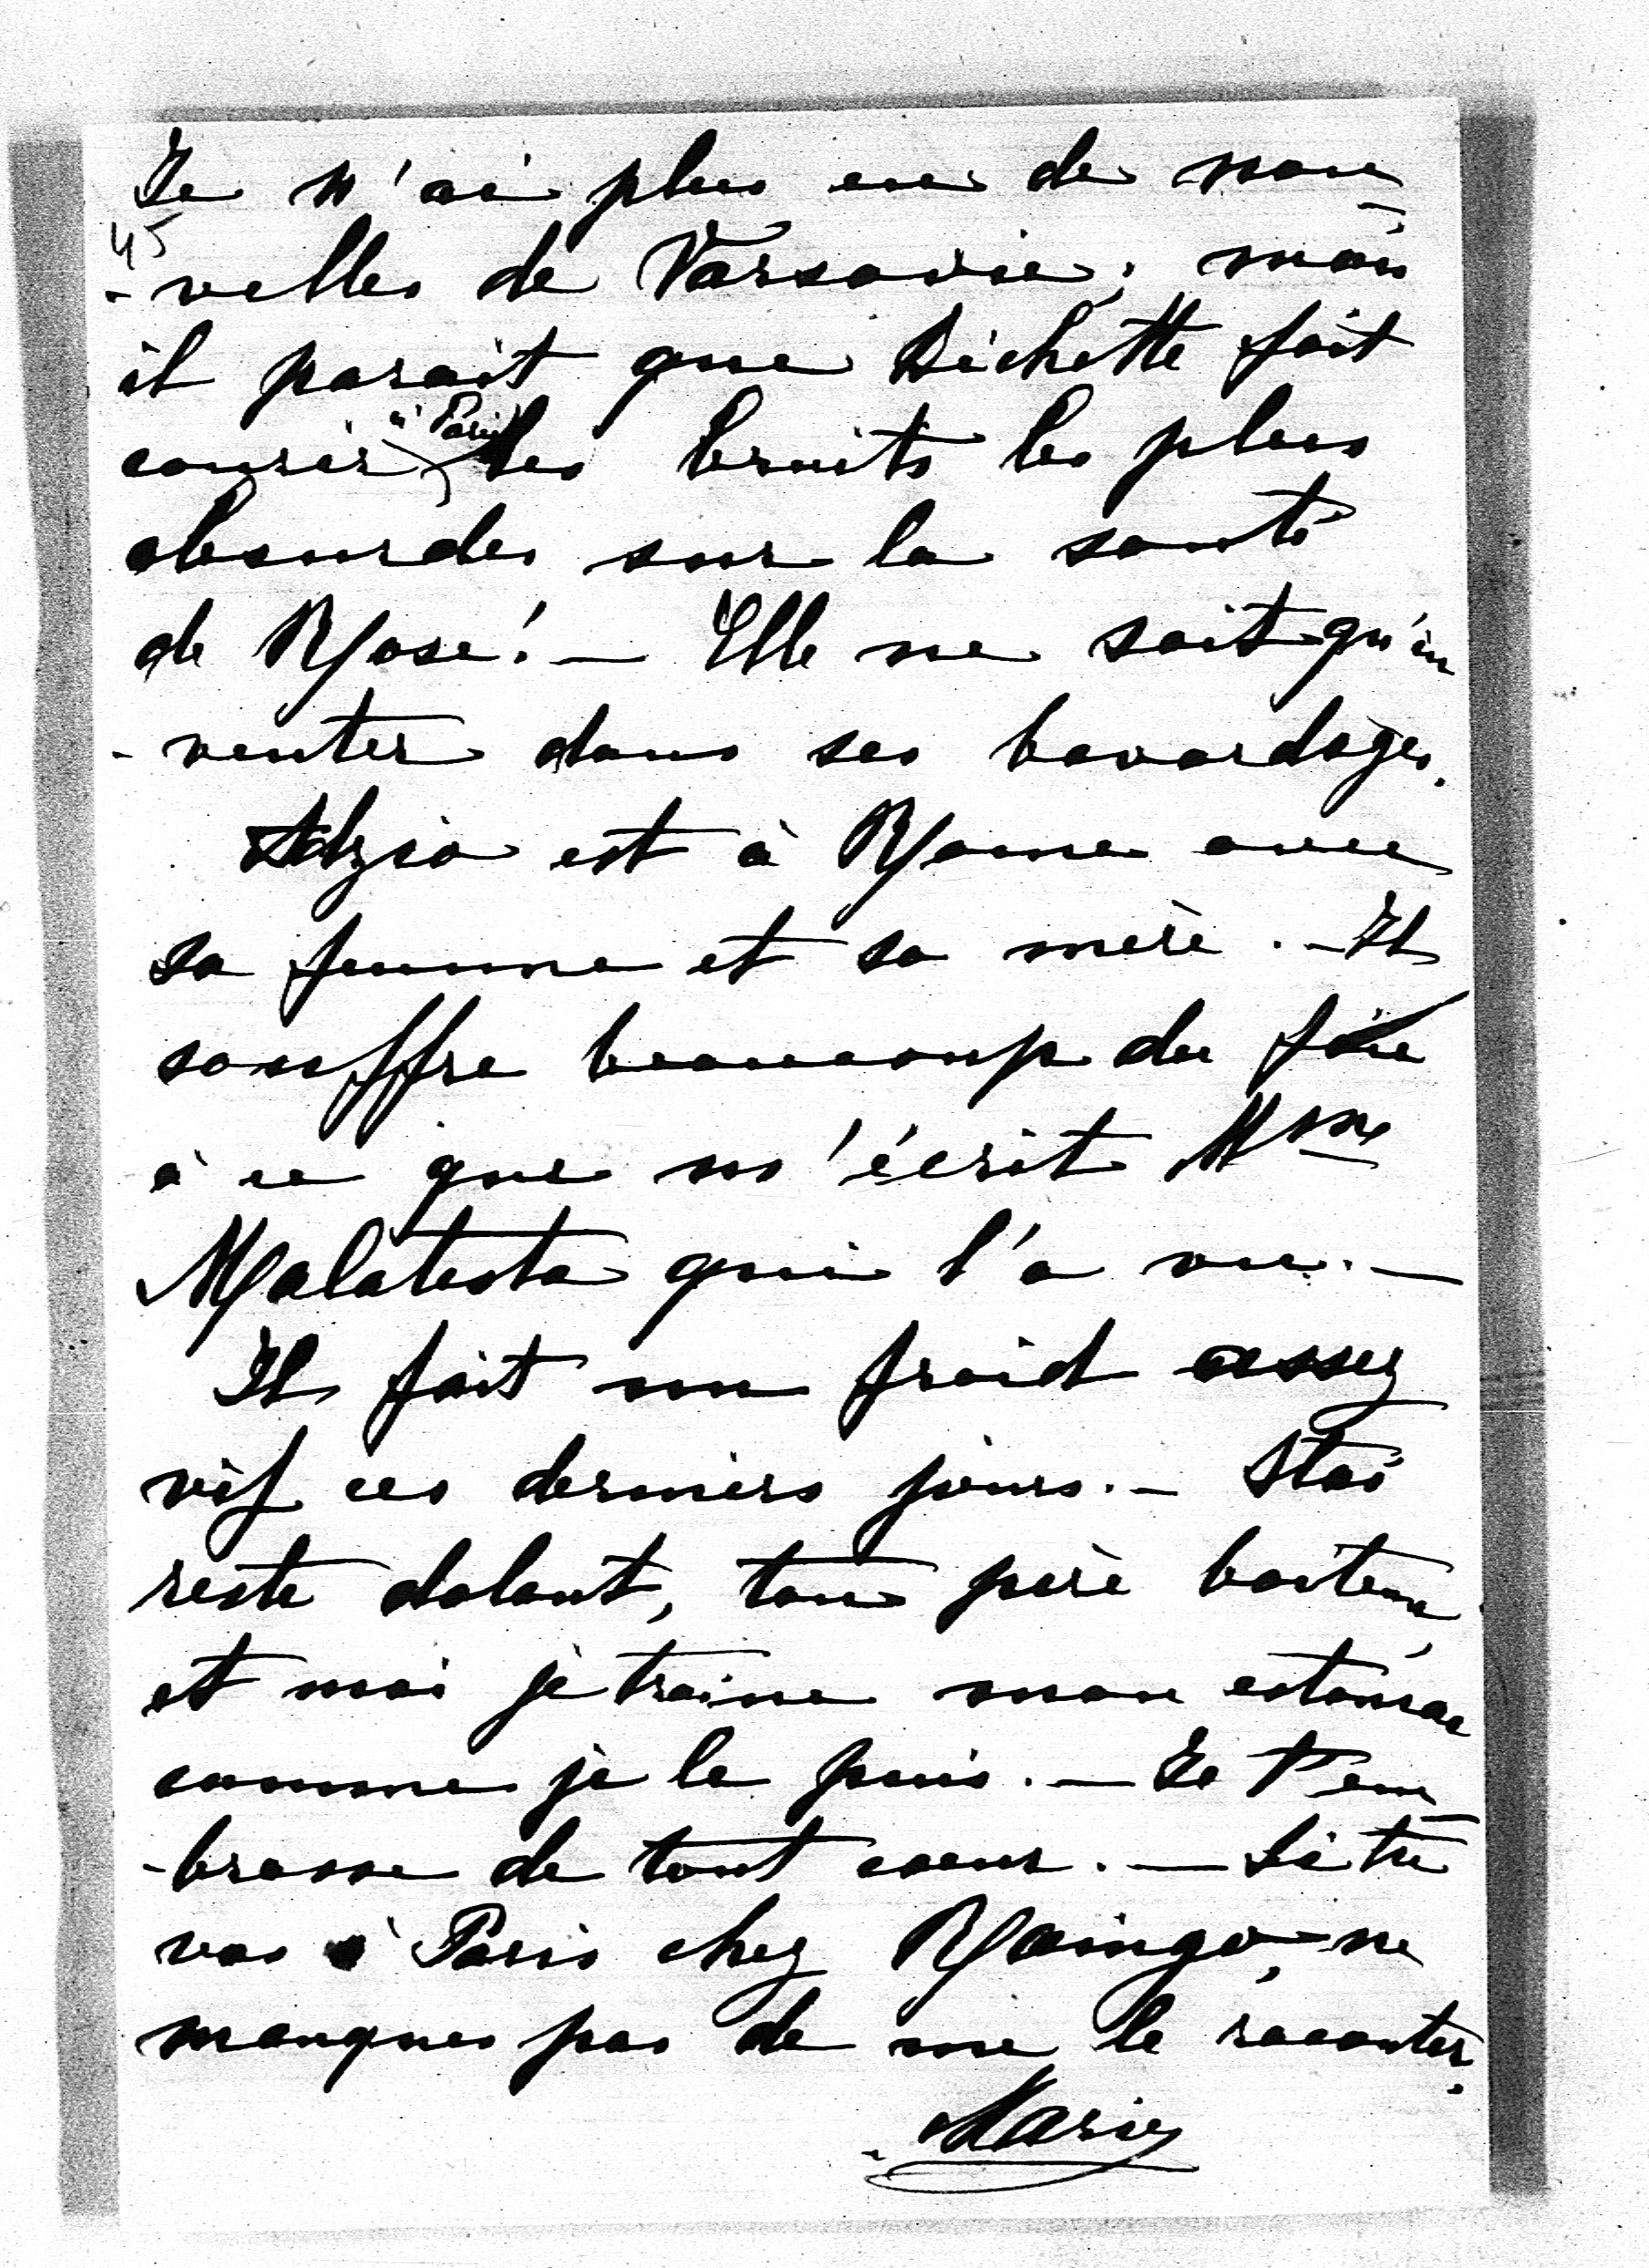 Je n'ai plus eu de nou-
45
-velles de Varsovie; mais
il parait que Bichette fait
à Paris
courir les bruits les plus
absurdes sur la santé
de Rose! — Elle ne sait qu'in
-venter dans ses bavardages.
Adzio est à Rome avec
sa femme et sa mère. — Il
souffre beaucoup du foie
à ce que m'écrit Mme
Malatesta qui l'a vu. —
Il fait un froid assez
vif ces derniers jours. — Staś
reste dolent, ton père boiteux
et moi je traine mon estomac
comme je le puis. — Je t'em
-brasse de tout coeur. — Si tu
vas à Paris chez Raingo, ne
manques pas de me le raconter.
Marie